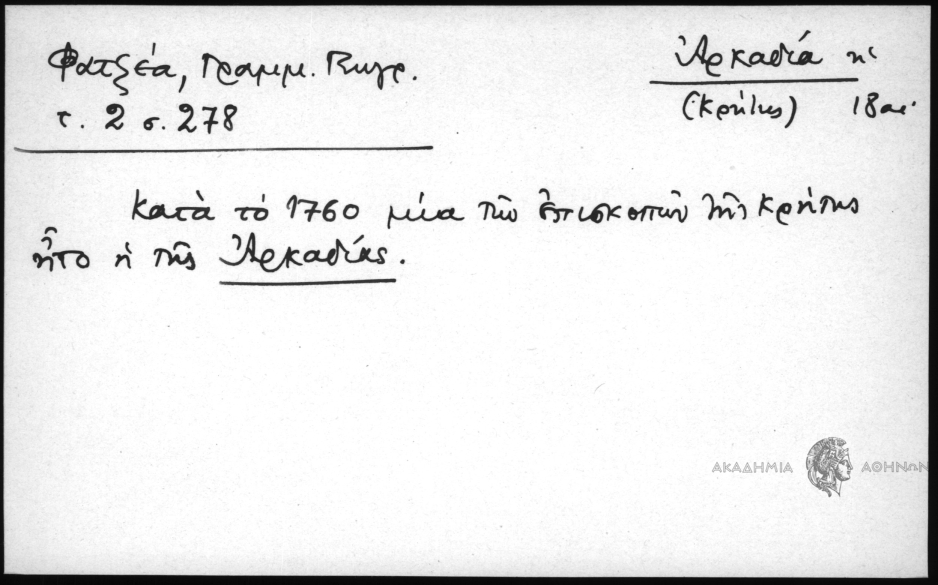 Φατζέα, Γραμμ. Γεωγρ.
τ. 2 σ. 278
Ἀρκαδία ἡ
(Κρήτης) 18 αι.
Κατὰ τὸ 1760 μία τῶν ἐπισκοπῶν τῆς Κρήτης
ἦτο ἡ τῆς Ἀρκαδίας.
ΑΚΑΔΗΜΙΑ ΑΘΗΝΩΝ